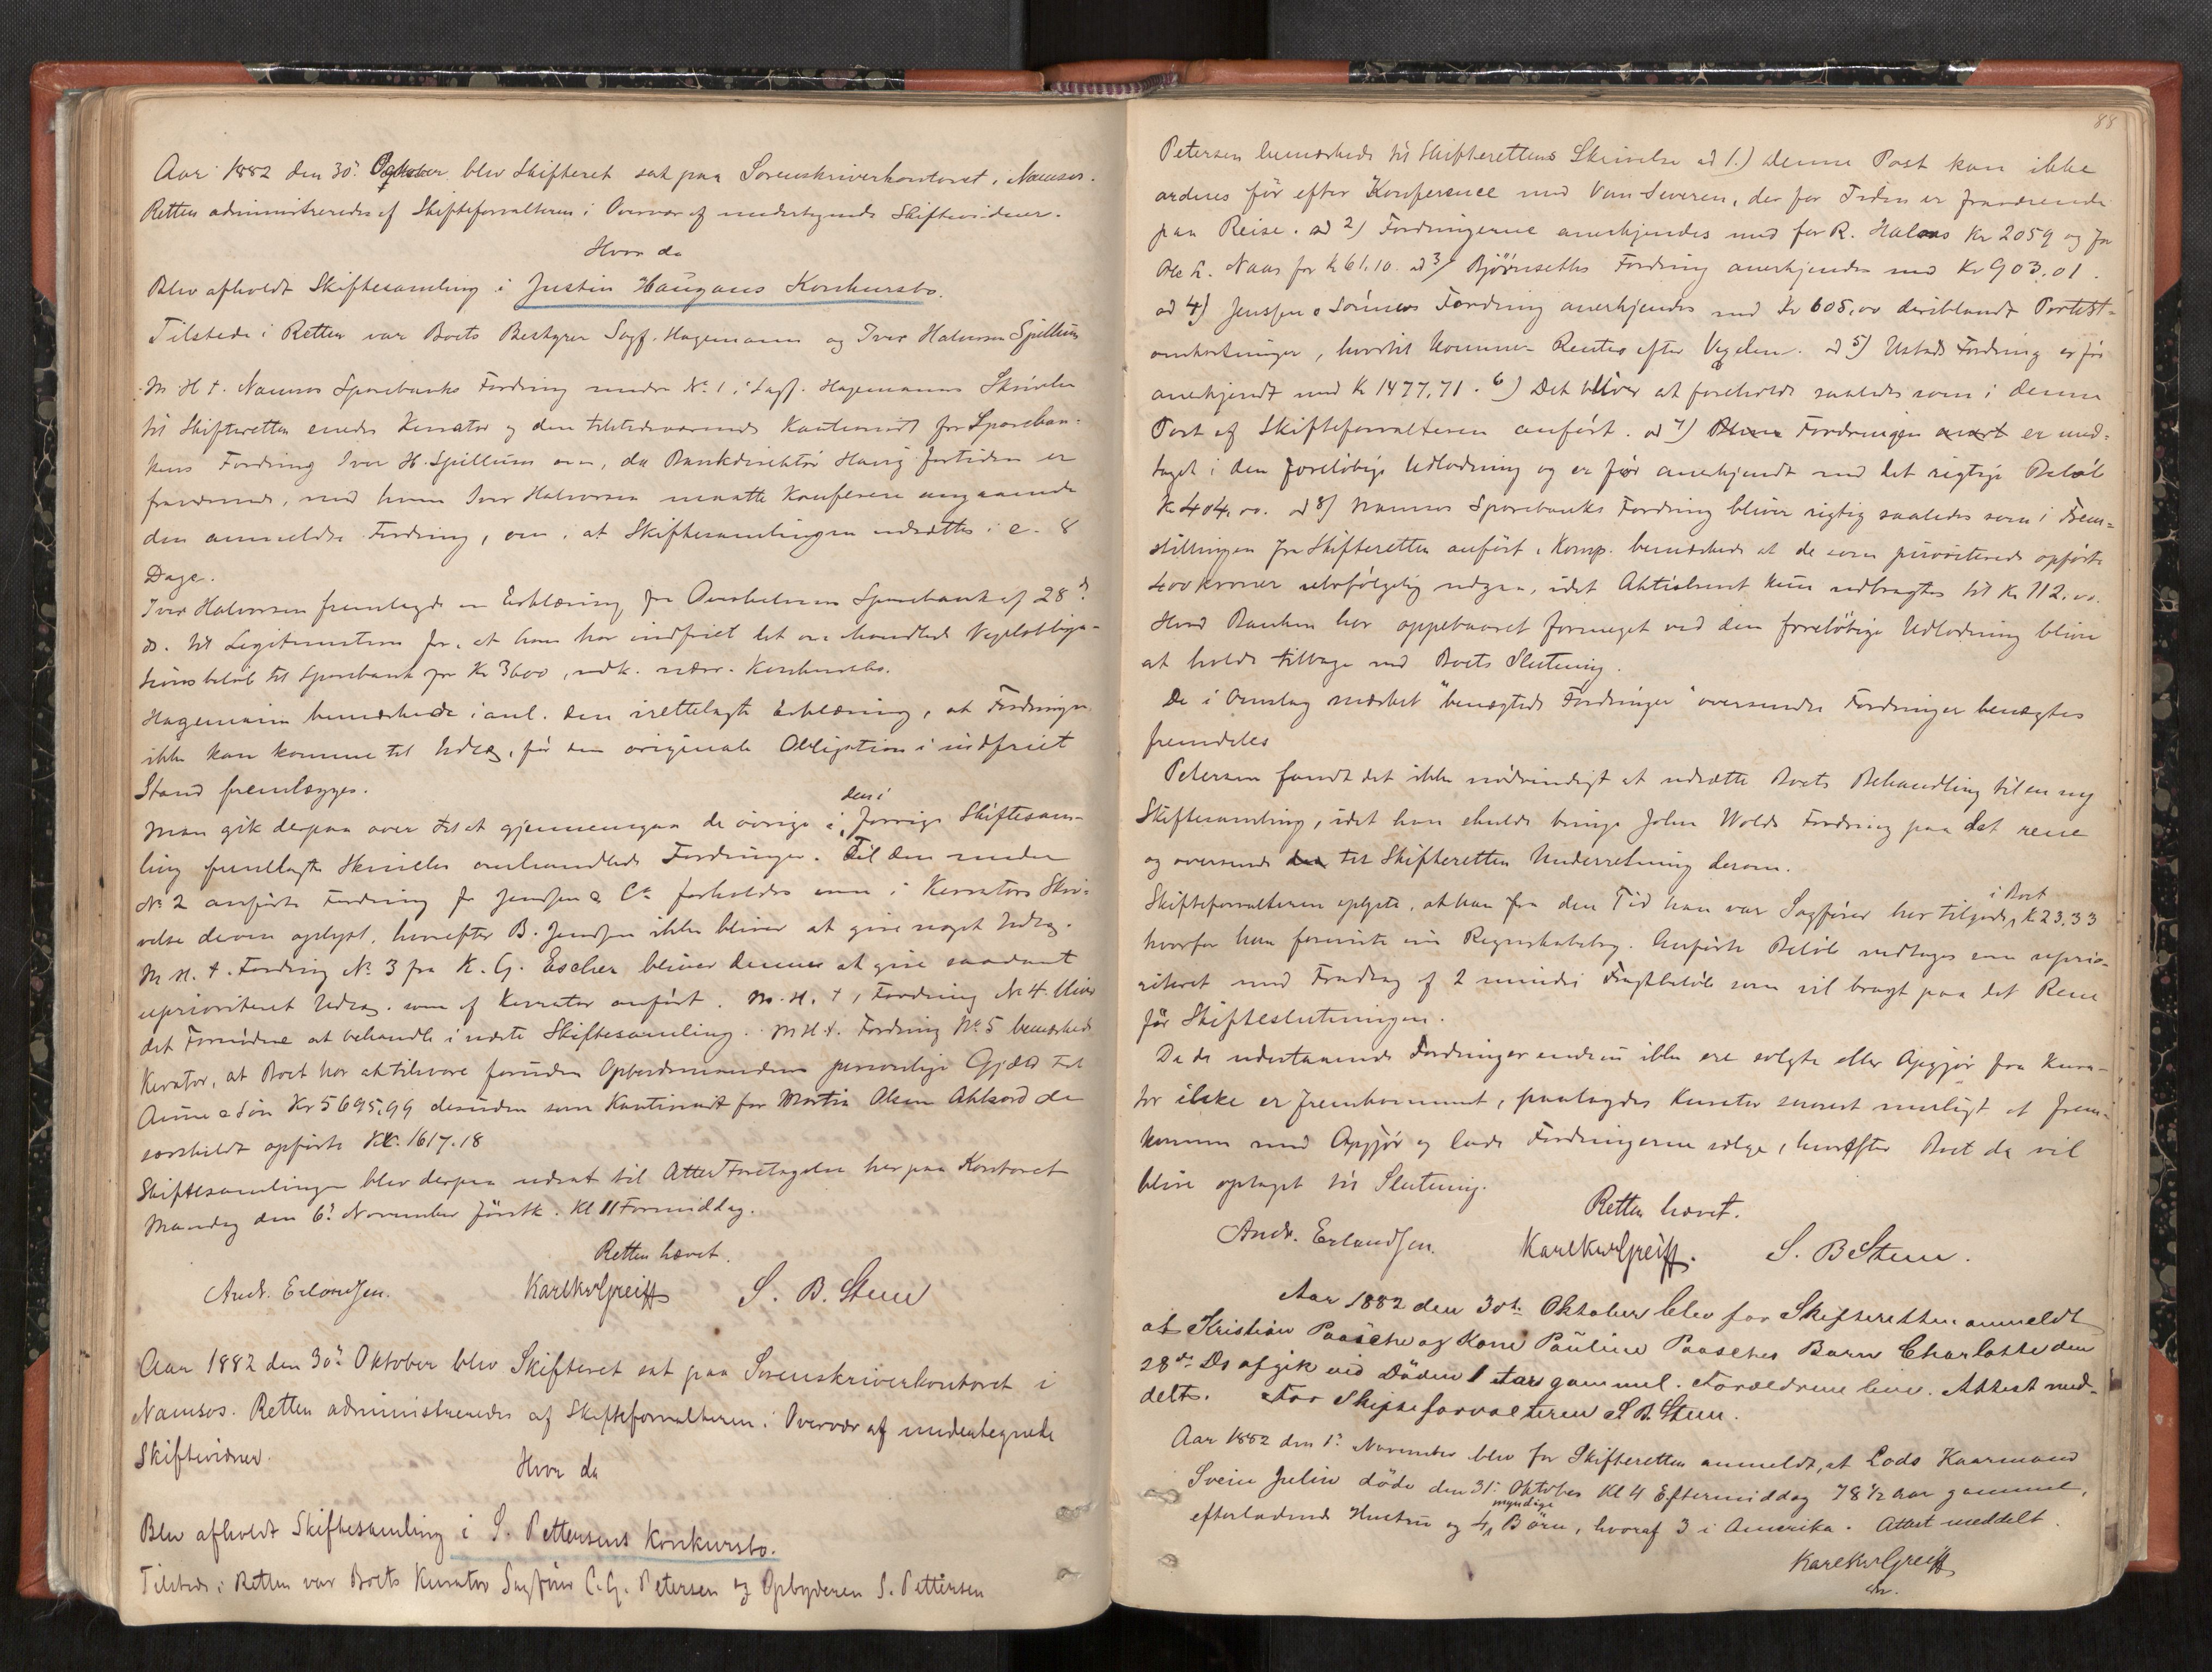 Aar 1882 den 30. Oktober blev Skifteret sat paa Sorenskriverkontoret, Namsos.
Retten administreredes af Skifteforvalteren i Overvær af undertegnede Skiftevidner.
Hvor da
Blev afholdt Skiftesamling i Justin Haugans Konkursbo.
Tilstede i Retten var Boets Bestyrer Sagf. Hagemann og Iver Halvorsen Spillum
M. H. t. Namsos Sparebanks Fordring under No. 1 i Sagf. Hagemanns Skrivelse
til Skifteretten enedes Kurator og den tilstedeværende Kautionist for Spareban-
kens Fordring Iver H. Spillum om, da Bankdirektør Havig fortiden er
fraværende, med hvem Iver Halvorsen maatte konferere angaaende
den anmeldte Fordring, om, at Skiftesamlingen udsættes i c. 8
Dage.
Iver Halvorsen fremlagde en Erklæring fra Overhalvens Sparebank af 28de
ds. til Legitimation for, at han har indfriet det omhandlede Vexelobliga-
tionsbeløb til Sparebank for Kr 3600, vedk. nærv. Konkursbo.
Hagemann bemærkede i anl. den irettelagte Erklæring, at Fordringen
ikke kan komme til Udlæg, før den originale Obligation i indfriet
Stand fremlægges.
Man gik derpaa over til at gjennemgaa de øvrige i den i forrige Skiftesam-
ling fremlagte Skrivelse omhandlede Fordringer. Til den under
No 2 anførte Fordring fra Jenssen & Co forholdes som i Kurators Skri-
velse derom oplyst, hvorefter B. Jenssen ikke bliver at give noget Udlæg.
M. H. t. Fordring No. 3 fra K. G. Escher bliver denne at give saadant
uprioriteret Udlæg som af Kurator anført. M. H. t. Fordring No 4 bliver
det Fornødne at behandle i næste Skiftesamling. M H t. Fordring No 5 bemærkede
Kurator, at Boet har at tilsvare foruden Opbudsmandens personlige Gjæld til
Aune & Søn Kr 5695,99 desuden som Kautionist for Martin Olsen de
særskildt opførte Kr. 1617.18
Skiftesamlingen blev derpaa udsat til Atter Foretagelse her paa Kontoret
Mandag den 6. November førstk. Kl 11 Formiddag.
Retten hævet.
Andr. Erlandsen. Karl Kv Greiff S. B. Steen
Aar 1882 den 30. Oktober blev Skifteret sat paa Sorenskriverkontoret i
Namsos. Retten administreredes af Skifteforvalteren i Overvær af undertegnede
Skiftevidner.
Hvor da
Blev afholdt Skiftesamling i S. Pettersens Konkursbo.
Tilstede i Retten var Boets Kurator Sagfører C. G. Petersen og Opbyderen S. Pettersen
88
Petersen bemærkede til Skifterettens Skrivelse ad 1.) denne Post kan ikke
ordnes før efter Konference med Van Severen, der for Tiden er fraværende
paa Reise. ad 2) Fordringerne anerkjendes med for R. Kr 2059 og for
Ole L. Naas for Kr 61.10. ad 3) Bjørnseths Fordring anerkjendes med Kr 903,01.
ad 4) Jenssen & Sønners Fordring anerkjendes med Kr 605,00 deriblandt Protest-
omkostninger, hvortil kommer Renter efter Vexelen. ad 5) Ustads Fordring er før
anerkjendt med Kr 1477,71. 6) Det bliver at forholde saaledes som i denne
Post af Skifteforvalteren anført. ad 7) Fordringen er med-
taget i den foreløbige Udlodning og er før anerkjendt med det rigtige Beløb
Kr 404,00. ad 8) Namsos Sparebanks Fordring bliver rigtig saaledes som i Frem-
stillingen fra Skifteretten anført. Komp. bemærkede at de som prioriterede opførte
400 kroner selvfølgelig udgaa, idet Aktivbrevet kun udbragtes til Kr 112.00.
Hvad Banken har oppebaaret formeget ved den foreløbige Udlodning bliver
at holde tilbage ved Boets Slutning.
De i Omslag mærket "benægtede Fordringer" oversendte Fordringer benægtes
fremdeles
Petersen fandt det ikke nødvendigt at udsætte Boets Behandling til en ny
Skiftesamling, idet han skulde bringe John Wolds Fordring paa det rene
og oversende til Skifteretten Underretning derom.
Skifteforvalteren oplyste, at han fra den Tid han var Sagfører har tilgode i Boet Kr 23,33
hvorfor han foreviste sin Regnskabsbog. Anførte Beløb medtages som uprio-
riteret med Fradrag af 2 mindre Fragtbeløb som vil bragt paa det Rene
før Skifteslutningen.
Da de udestaaende Fordringer endnu ikke ere solgte eller Opgjør fra Kura-
tor ikke er fremkommet, paalagdes Kurator snarest muligt at frem-
komme med Opgjør og lade Fordringerne sælge, hvorefter Boet da vil
blive optaget til Slutning.
Retten hævet.
Andr. Erlandsen. Karl Kv Greiff. S. B Steen.
Aar 1882 den 30te Oktober blev for Skifteretten anmeldt
at Kristian Paasche og Kone Pauline Paasches Barn Charlotte den
28de Ds afgik ved Døden 1 Aar gammel. Forældrene leve. Attest med-
delt. For Skifteforvalteren S B. Steen.
Aar 1882 den 1. November blev for Skifteretten anmeldt, at Lods Kaarmand
Svein Julin døde den 31. Oktober Kl 4 Eftermiddag 78 1/2 Aar gammel,
efterladende Hustru og 4 myndige Børn, hvoraf 3 i Amerika. Attest meddelt.
Karl Kv Greiff